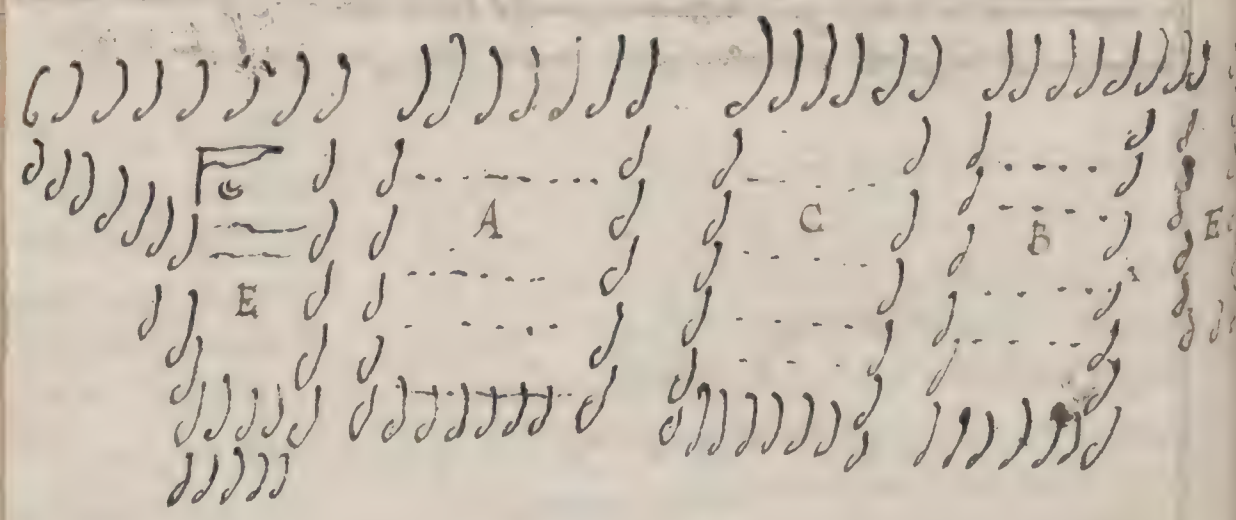 G
A C B E
E